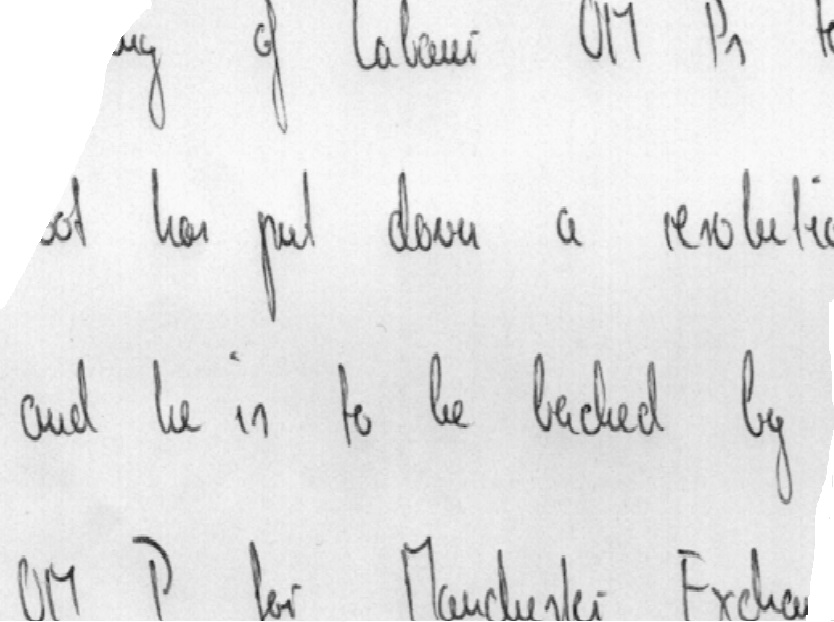 ing of Labour M Ps to
oot has put down a resolutio
and he is to be backed by
M P for Manchester Exchan